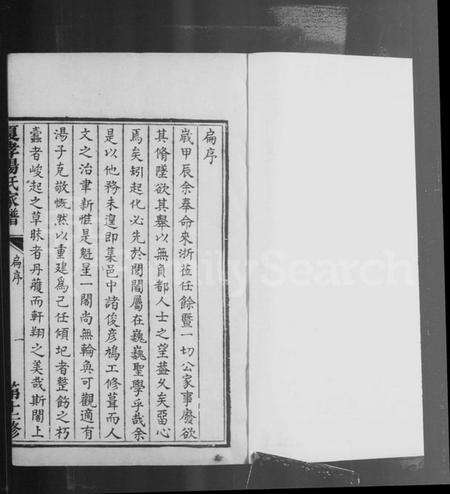 扁序
歲甲辰余奉命來浙莅任餘暨一切公家事廢欲
其脩墜欲其舉以無負都人士之望葢久矣留心
焉矣矧起化必先於閭閻屬在巍巍聖學乎哉余
是以他務未遑即集邑中諸俊彦鳩工修葺而人
文之治聿新惟是魁星一閣尚無輪奐可觀適有
湯子克敬慨然以重建爲己任傾圮者整飭之朽
蠹者峻起之草昧者丹雘而軒翔之美哉斯閣上
夏孝湯氏家譜
扁序
一
第十二修
FamilySearch